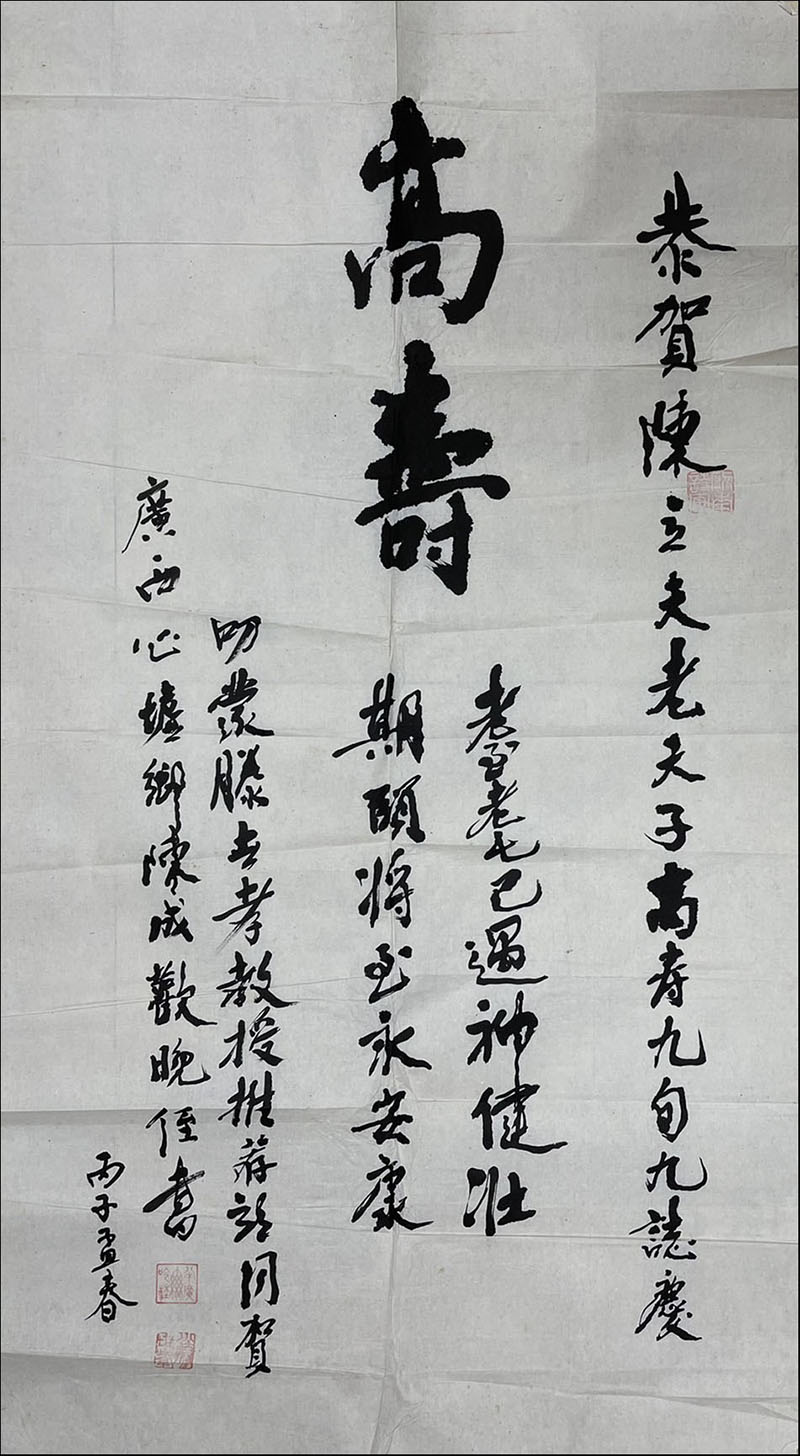 恭賀陳立夫老夫子高寿九旬九誌慶
高壽
耋耄已過神健壯
期頤將至永安康
叨蒙滕
孝教授推荐
同賀
廣西
墟鄉陳成歡晚侄書
丙子孟春